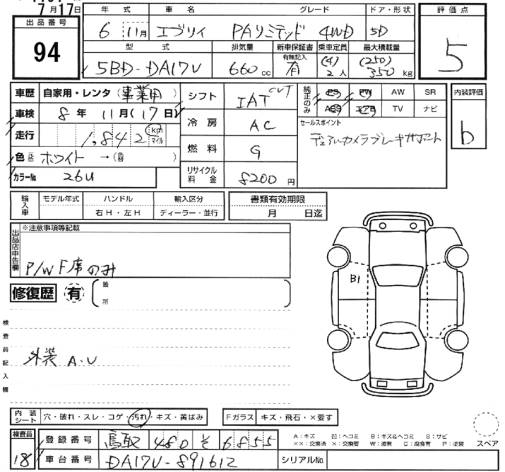 7月17日
出品番号 94
年式 車名 グレード ドア・形状
6 11月 エブリイ PAリミテッド 4WD 5D
評価点 5
型式 排気量 新車保証書 乗車定員 最大積載量
5BD-DA17V 660cc 有 (4) 2人 (250) 350kg
車歴 自家用・レンタ・事業用
車検 8年11月(17日)
走行 1,842 km マイル
色 ホワイト→(
カラーNo 26U
シフト IAT CVT
冷房 AC
燃料 G
リサイクル料金 8200円
純正のみ PS PW AW SR
TV ナビ
セールスポイント
デュアルカメラブレーキサポート
内装評価 b
輸入車 モデル年式 ハンドル 右H・左H 輸入区分 ディーラー・並行
書類有効期限 月 日迄
出品店申告欄 ※注意事項等記載
P/W F席のみ
修復歴 有 箇所
B1
検査員記入欄
外装 A.U
内装シート 穴・破れ・スレ・コゲ・汚れ・キズ・黄ばみ
Fガラス キズ・飛石・×要す
検査員 18
登録番号 鳥取 480 そ 6855
車台番号 DA17V-891612
シリアルNo.
A:キズ U:ヘコミ B:キズ&ヘコミ S:サビ
XX:交換済 X:交換要 W:波消 C:腐食 P:塗装
スペア